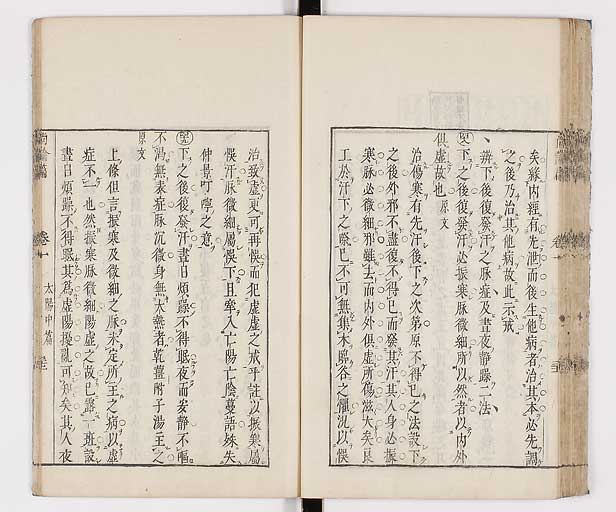 矣蓋內經有先泄而後生他病者治其本必先調
之後乃治其他病故此示戒
辨下後復發汗之脉症及晝夜靜躁二法
下之後復發汗必振寒脉微細所以然者以內外
俱虛故也 原文
治傷寒有先汗後下之次第原不得已之法設下
之後外邪不盡復不得已而發其汗其人身必振
寒脉必微細邪雖去而內外俱虛所傷滋大矣良
工於汗下之際已不可無集木臨谷之懼況以悞
治致虛更可再悞而犯虛虛之戒乎註以振寒屬
悞汗脉微細屬悞下且牽入亡陽亡陰蔓語殊失
仲景叮嚀之意
下之後復發汗晝日煩躁不得眠夜而安靜不嘔
不渴無表症脉沉微身無大熱者乾薑附子湯主之
原文
上條但言振寒及微細之脉未定所主之病以虛
症不一也然振寒脉微細陽虛之故已露一班設
晝日煩躁不得眠其為虛陽擾亂可知矣其人夜
尚論篇 卷一 太陽中篇